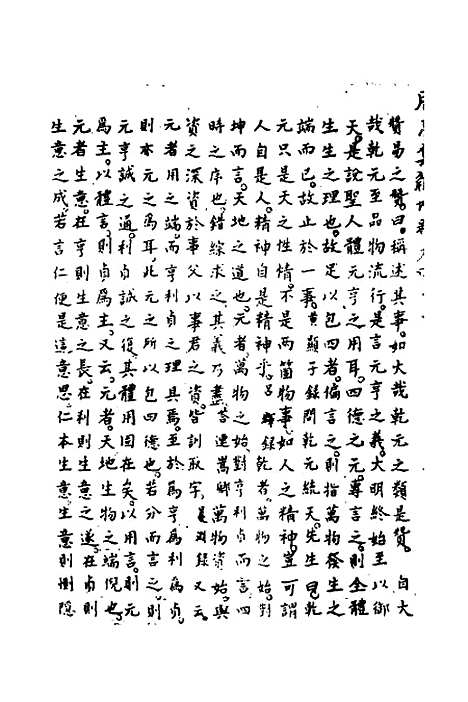 贊易之贊曰。稱述其事。如大哉乾元之類是贊。自大
哉乾元至品物流行。是言元亨之義。大明終始至以御
天。是說聖人體元亨之用耳。四德之元。專言之。則全體
生生之理也。故足以包四者。偏言之。則指萬物發生之
端而已。故止於一事。黃顯子錄問乾元統天。先生曰。乾
元只是天之性情。不是兩箇物事。如人之精神。豈可謂
人自是人。精神自是精神乎。錄乾者。萬物之始。對
坤而言。天地之道也。元者。萬物之始。對亨利貞而言。四
時之序也。錯綜求之。其義乃盡。答連嵩卿萬物資始。與
資之深資於事父以事君之資。皆訓取字。錄又云。
元者用之端。而亨利貞之理具焉。至於爲亨爲利爲貞。
則本元之爲耳。此元之所以包四德也。若分而言之。則
元亨誠之通。利貞誠之復。其體用固在矣。以用言。則元
爲主。以體言。則貞爲主。又云。元者。天地生物之端倪也。
元者生意。在亨則生意之長。在利則生意之遂。在貞則
生意之成。若言仁便是這意思。仁本生意。生意則惻隱